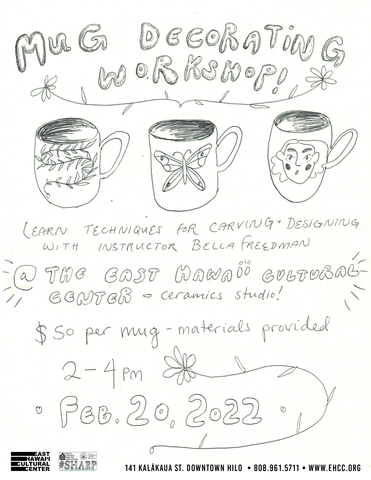 MUG DECORATING
WORKSHOP!
LEARN TECHNIQUES FOR CARVING + DESIGNING
WITH INSTRUCTOR BELLA FREEDMAN
@ THE EAST HAWAII CULTURAL
CENTER - ceramics studio!
$50 per mug - materials provided
2-4PM
FEB. 20, 2022
EAST
HAWAI'I
CULTURAL
CENTER
#SHARP
141 KALĀKAUA ST. DOWNTOWN HILO • 808.961.5711 • WWW.EHCC.ORG